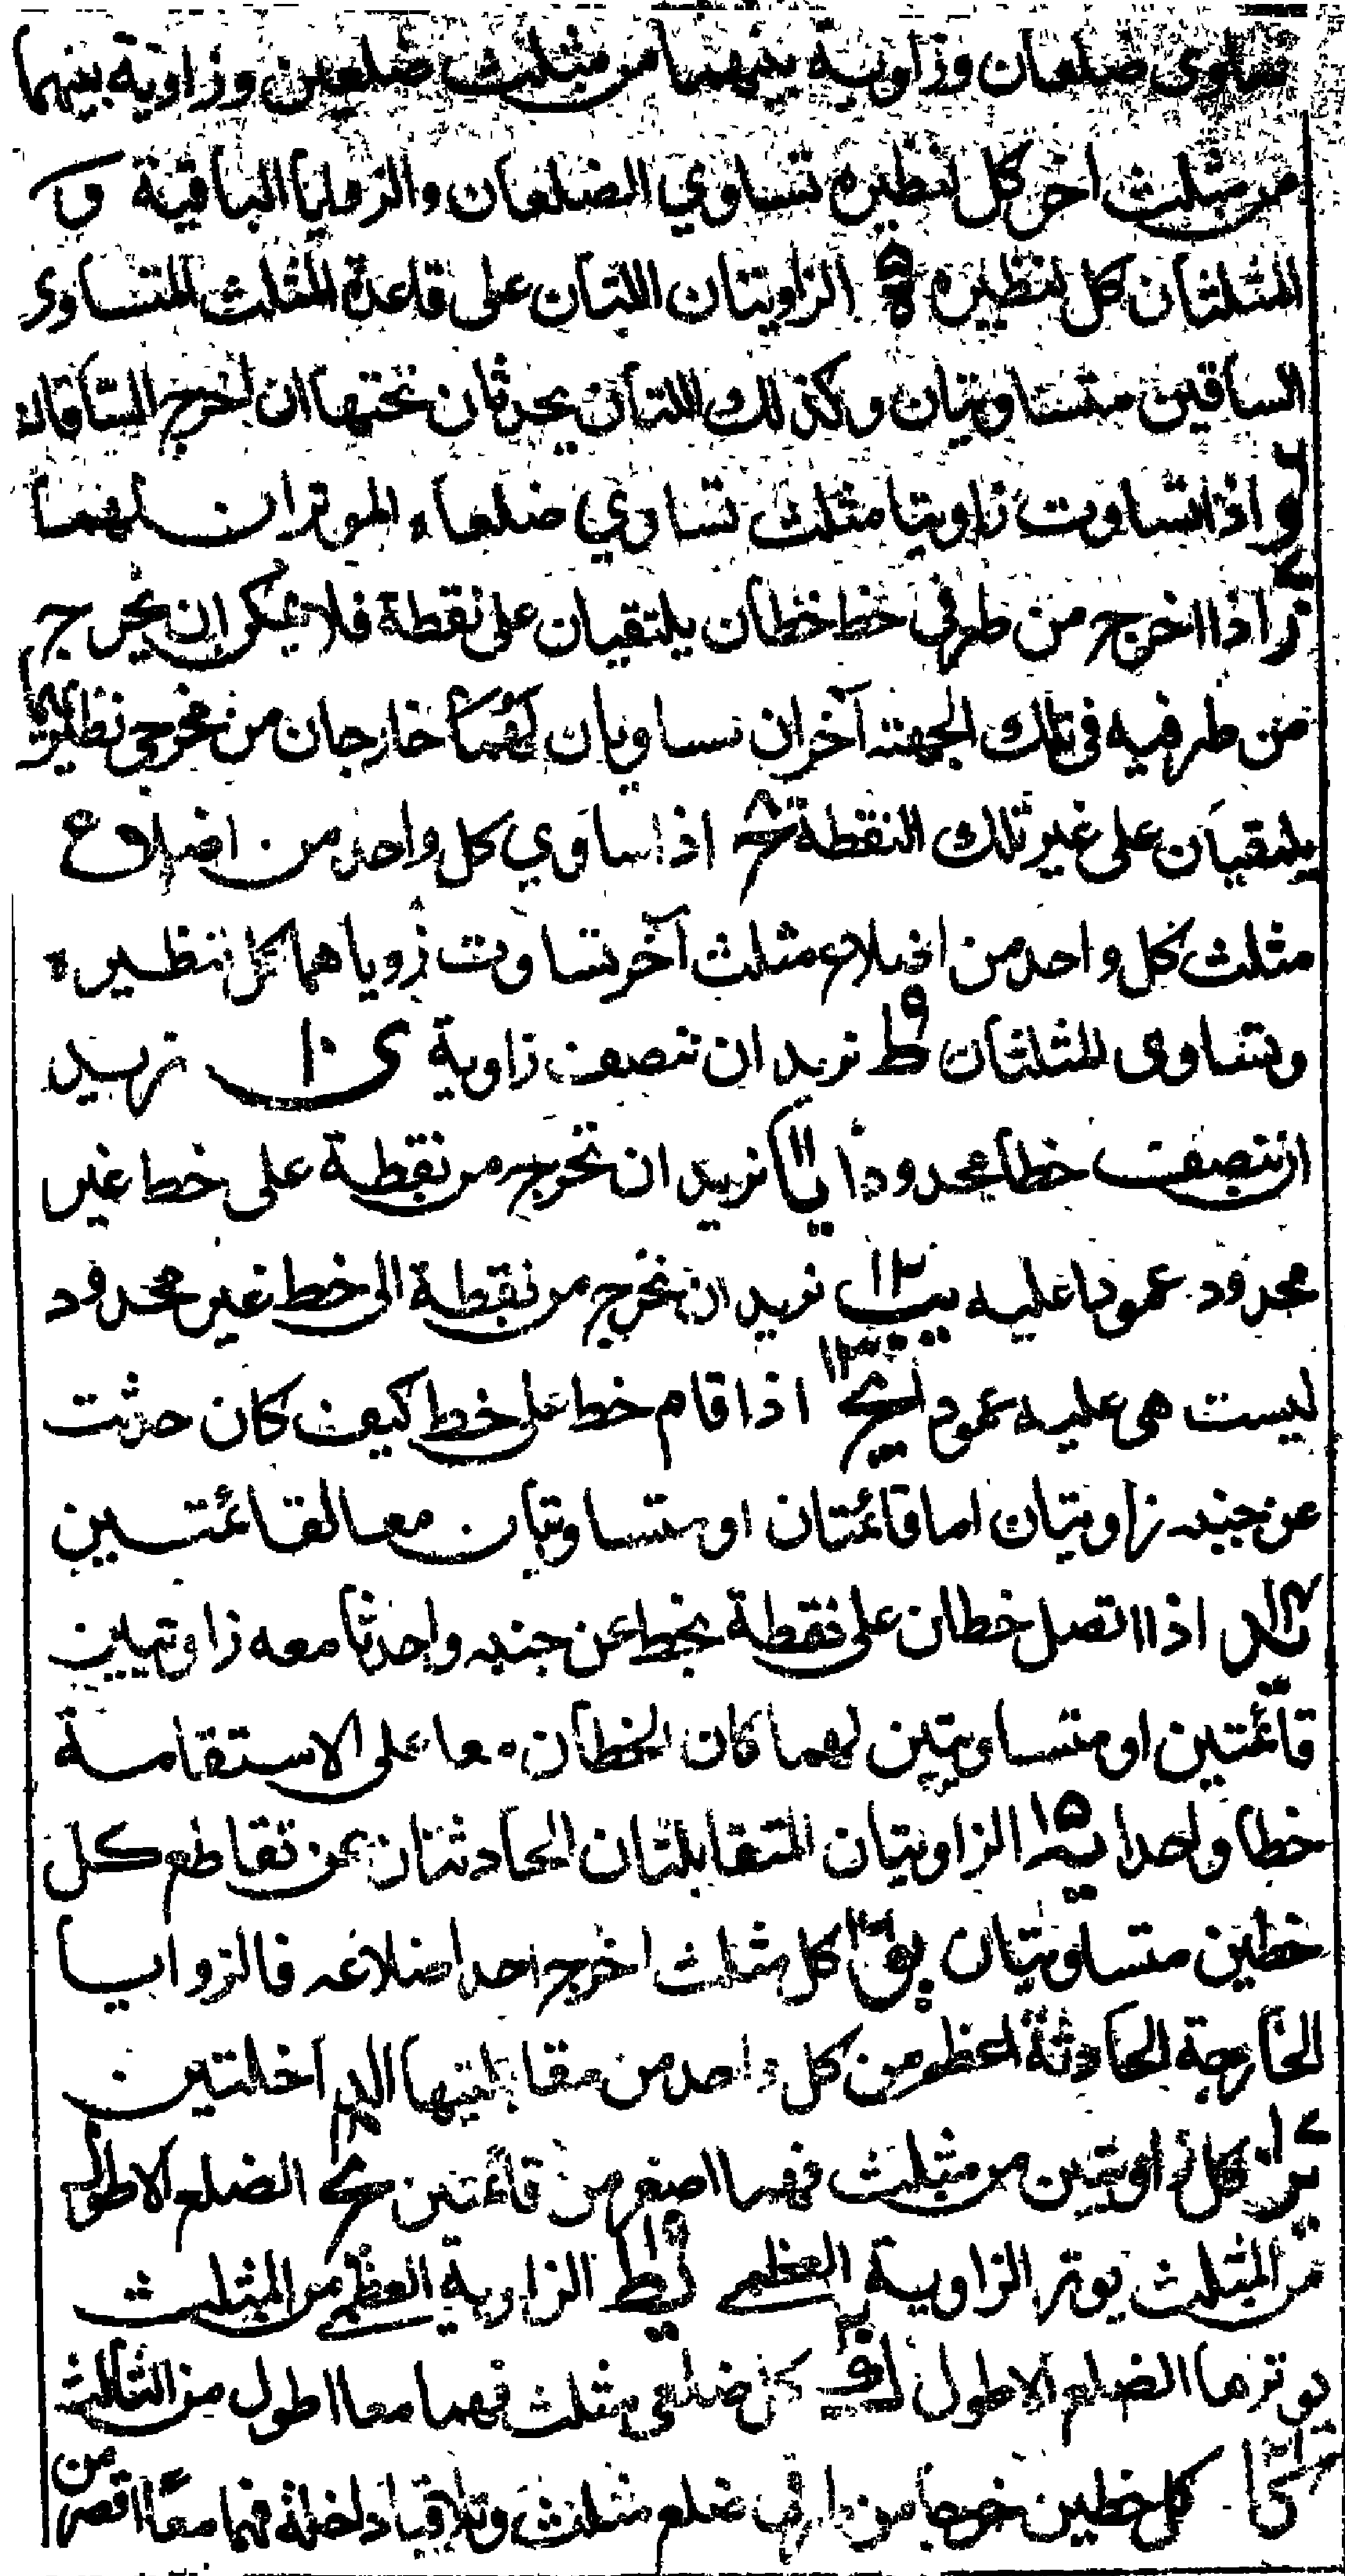 تساوى ضلعان وزاوية بينهما من مثلث ضلعين وزاوية بينهما
من مثلث اخر كل لنظيره تساوي الضلعان والزوايا الباقية و
المثلثان كل لنظيره ه الزاويتان اللتان على قاعدة المثلث المتساوى
الساقين متساويتان وكذلك اللتان يحدثان تحتها ان اخرج الساقان
و ٦ اذا تساوت زاويتا مثلث تساوي ضلعاه الموتران لهما
ز ٧ اذا اخرج من طرفي خط خطان يلتقيان على نقطة فلا يمكن ان يخرج
من طرفيه فى تلك الجهته آخران يساويان لهما خارجان من مخرجى
يلتقيان على غير تلك النقطة ح ٨ اذا ساوي كل واحد من اضلاع
مثلث كل واحد من اضلاع مثلث آخر تساوت زوياهما كل لنظيره
وتساوى المثلثان ط ٩ نريد ان ننصف زاوية ى ١٠ نريد
ان ننصف خطا محدودا يا ١١ نريد ان نخرج من نقطة على خط غير
محدود عمودا عليه يب ١٢ نريد ان نخرج من نقطة الى خط غير محدود
ليست هى عليه عمودا يج ١٣ اذا قام خط على خط كيف كان حدثت
عن جنبيه زاويتان اما قائمتان او متساويتان معا لقائمتين
يد ١٤ اذا اتصل خطان على نقطة بخط عن جنبيه واحدثا معه زاويتين
قائمتين او متساويتين لهما كان الخطان معا على الاستقامة
خطا واحدا يه ١٥ الزاويتان المتقابلتان الحادثتان عن تقاطع كل
خطين متساويتان يو ١٦ كل مثلث اخرج احد اضلاعه فالزوايا
الخارجة الحادثة اعظم من كل واحد من مقابلتيها الداخلتين
يز ١٧ كل زاويتين من مثلث فهما اصغر من قائمتين يح ١٨ الضلع الاطول
من المثلث يوتر الزاوية العظمى يط ١٩ الزاوية العظمى من المثلث
يوترها الضلع الاطول ك ٢٠ كل ضلعي مثلث فهما معا اطول من الثالث
كا ٢١ كل خطين خرجا من طرفى ضلع مثلث وتلاقيا داخله فهما معا اقصر من